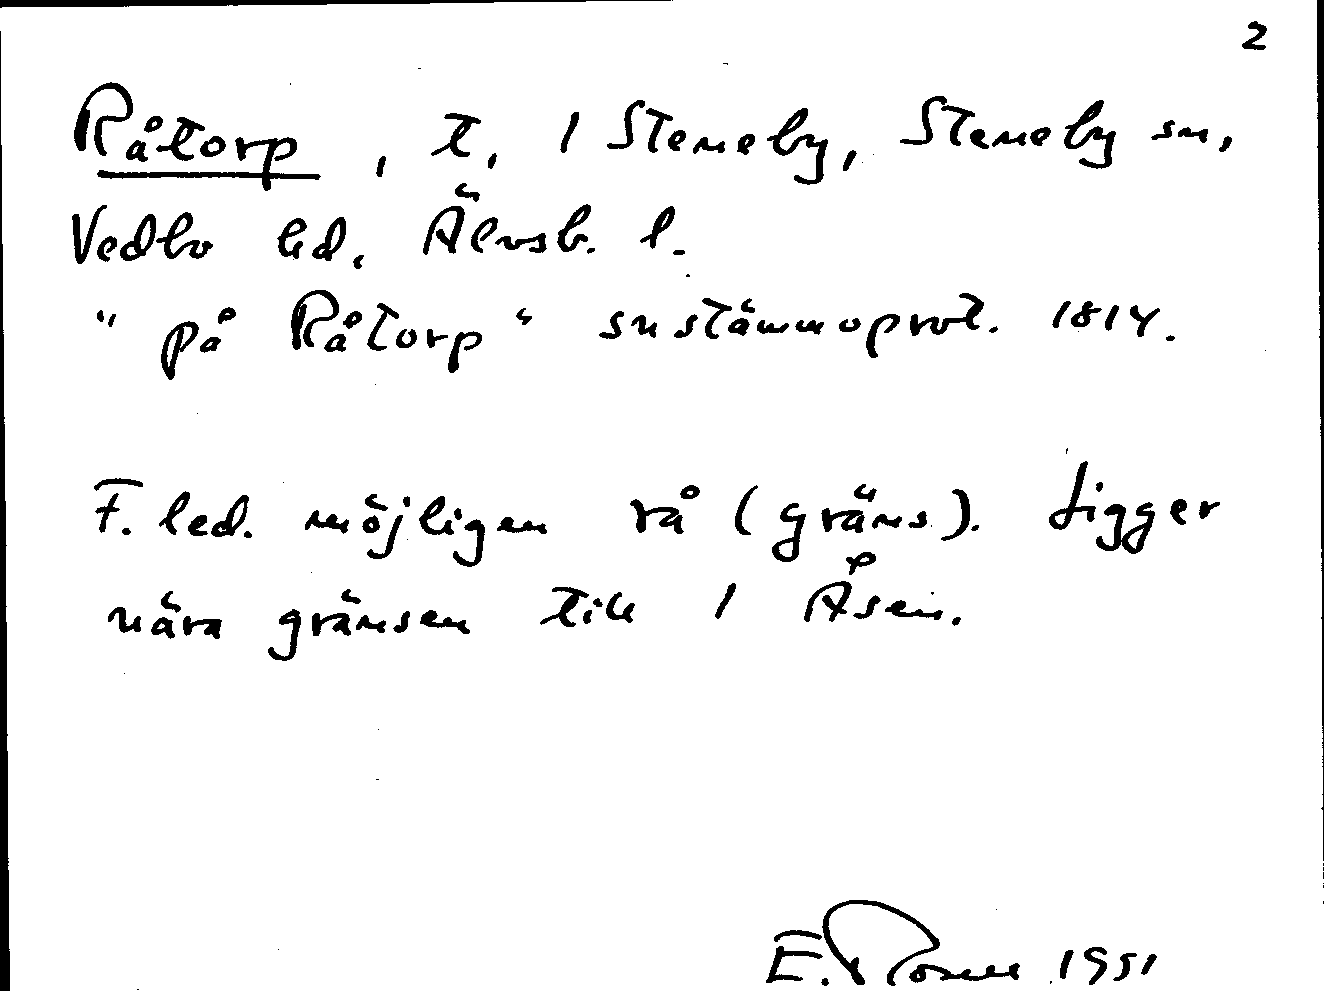 2
Råtorp, t. / Steneby, Steneby sn,
Vedbo hd, Älvsb. l.
"på Råtorp" snstämmoprot. 1814.
F. led. möjligen rå (gräns). Ligger
nära gränsen till / Åsen.
E. Rosell 1951